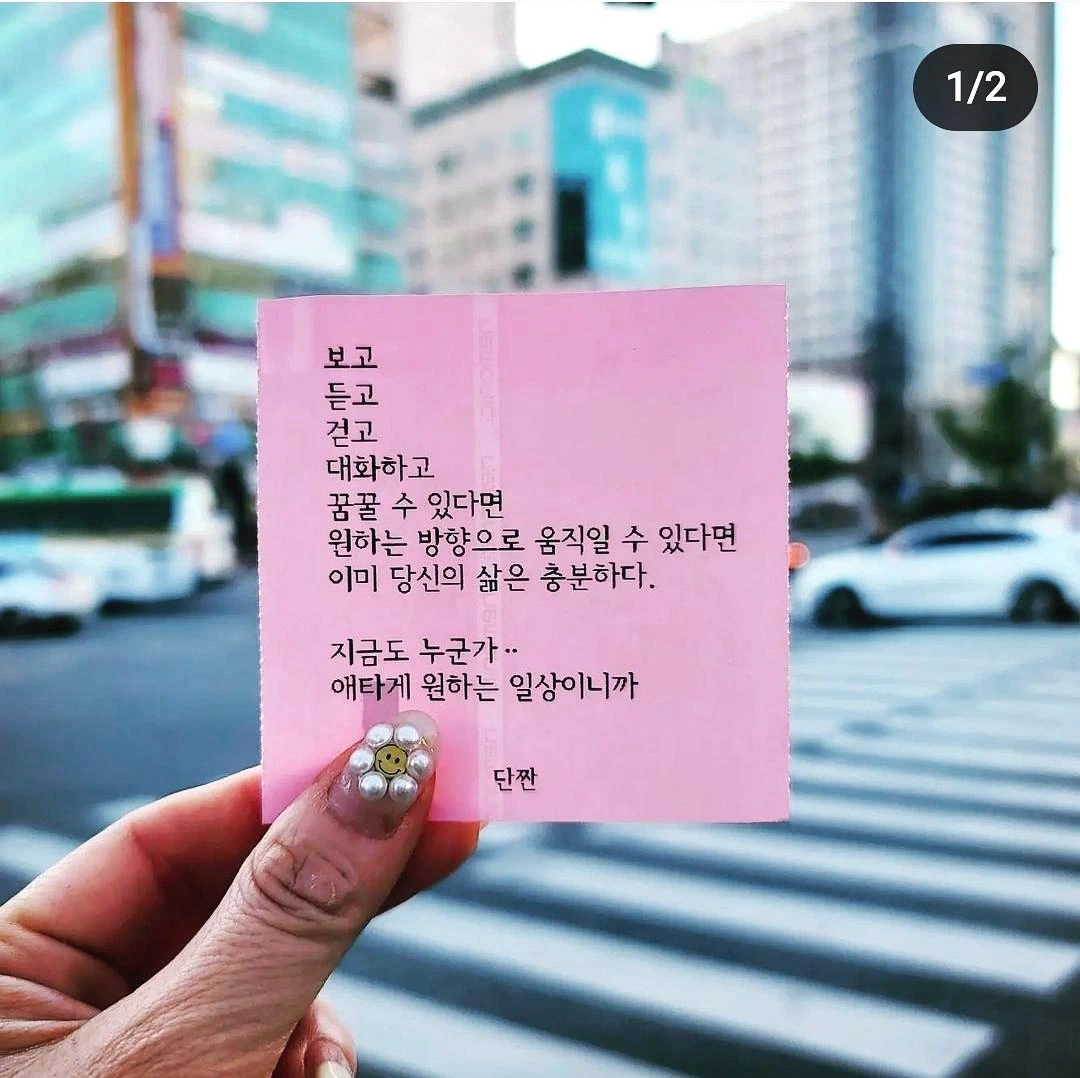 1/2
보고
듣고
걷고
대화하고
꿈꿀 수 있다면
원하는 방향으로 움직일 수 있다면
이미 당신의 삶은 충분하다.
지금도 누군가··
애타게 원하는 일상이니까
단짠